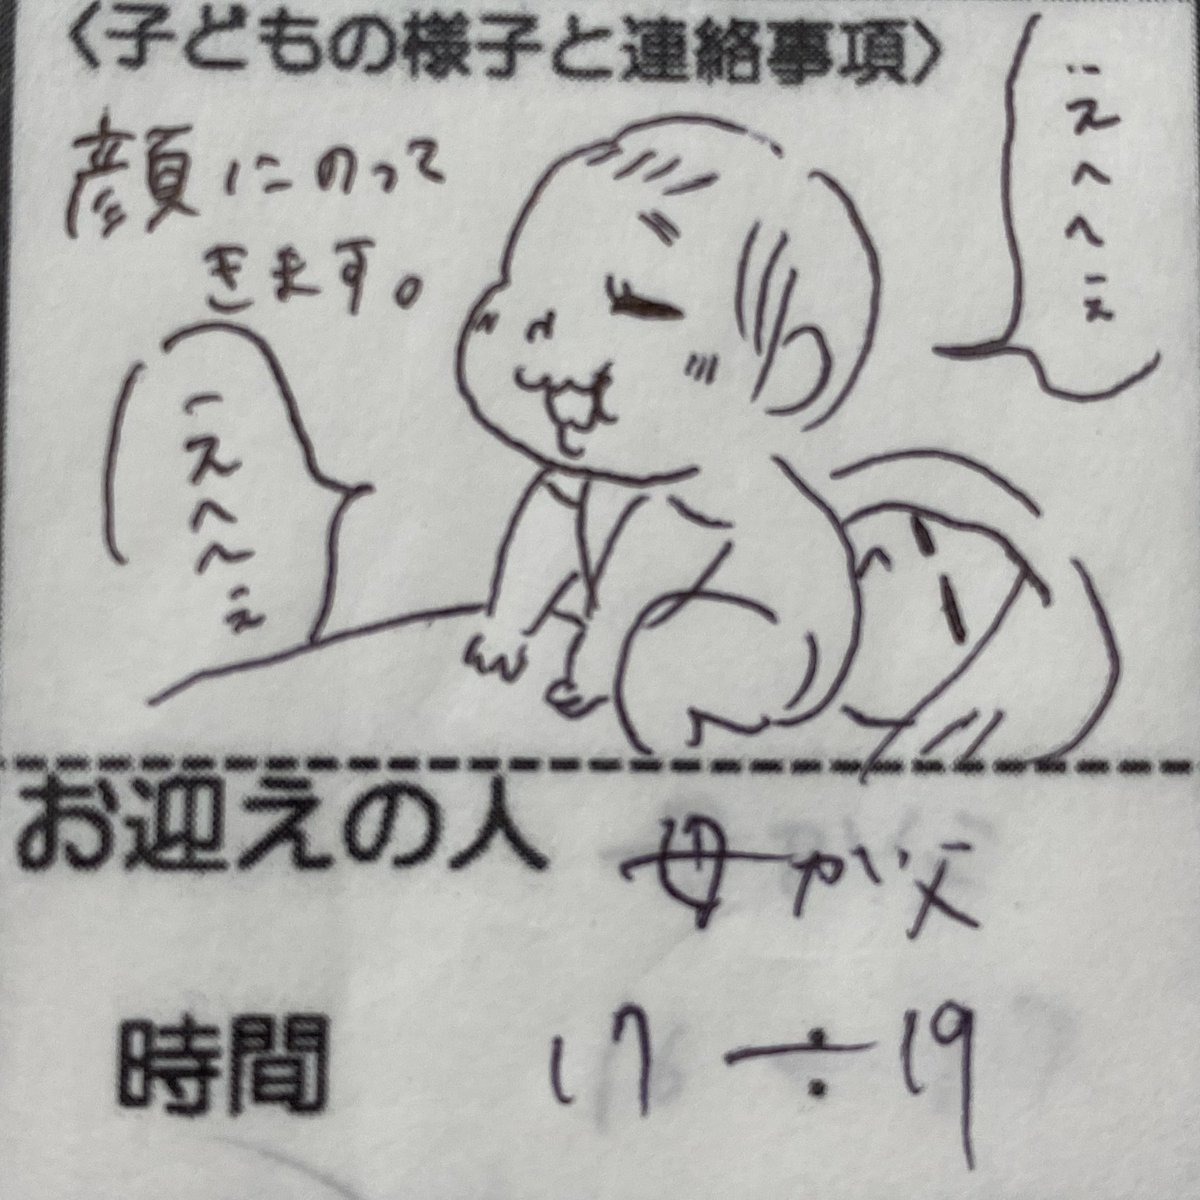 〈子どもの様子と連絡事項〉
顔にのって
きます。
えへへぇ
えへへぇ
お迎えの人 母か父
時間 17 ÷ 19